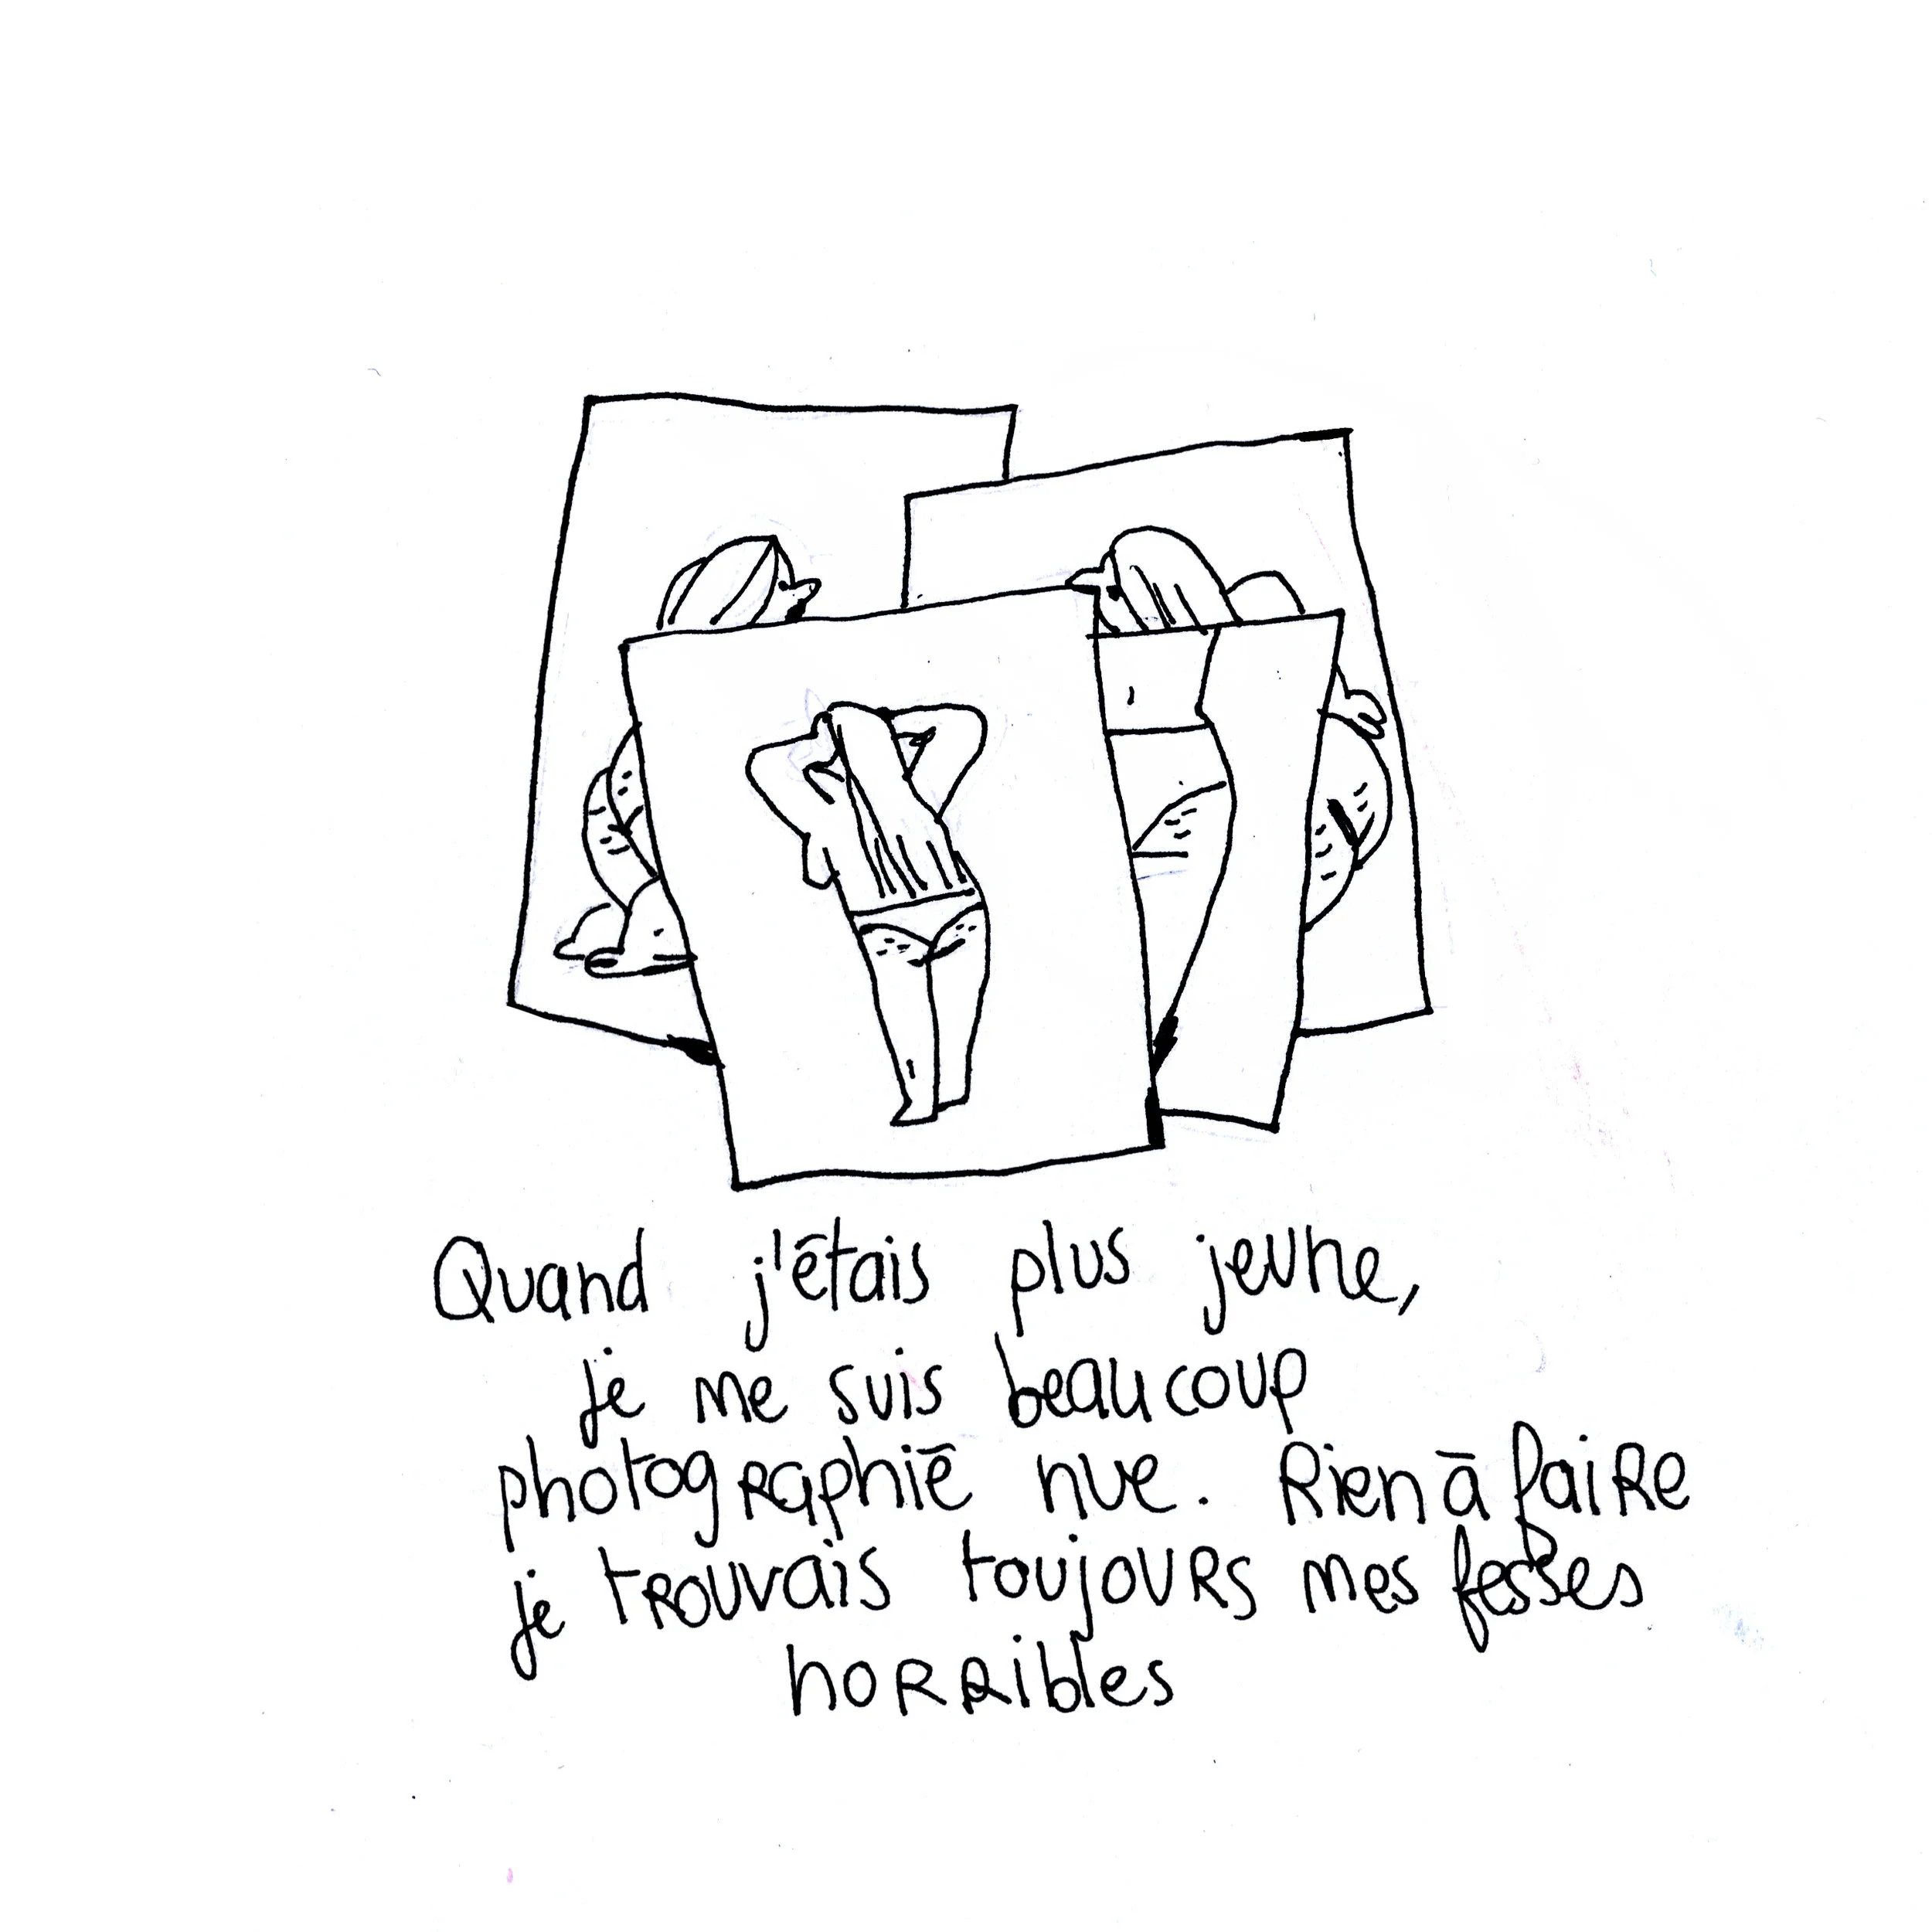 Quand j'étais plus jeune,
je me suis beaucoup
photographié nue. Rien à faire
je trouvais toujours mes fesses
horribles